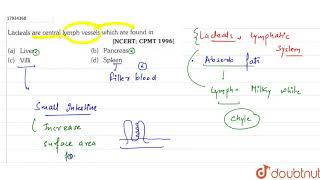 17934368
Lacteals are central lymph vessels which are found in
[NCERT: CPMT 1996]
(a) Liver
(b) Pancreas
(c) Villi
(d) Spleen
Filler blood
Small Intestine
Increase
surface area
for
{ Lacteals, Lymphatic
System
Absorb fats
Lymph - Milky white
Chyle
doubtnut